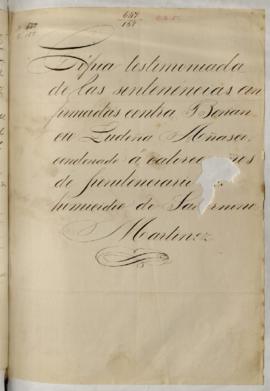 647
157
Copia testimoniada
de las sentencias con
firmadas contra
en Ludeña Meñaser
condenado á catorce años
de penitenciaría
homicidio de
Martinez